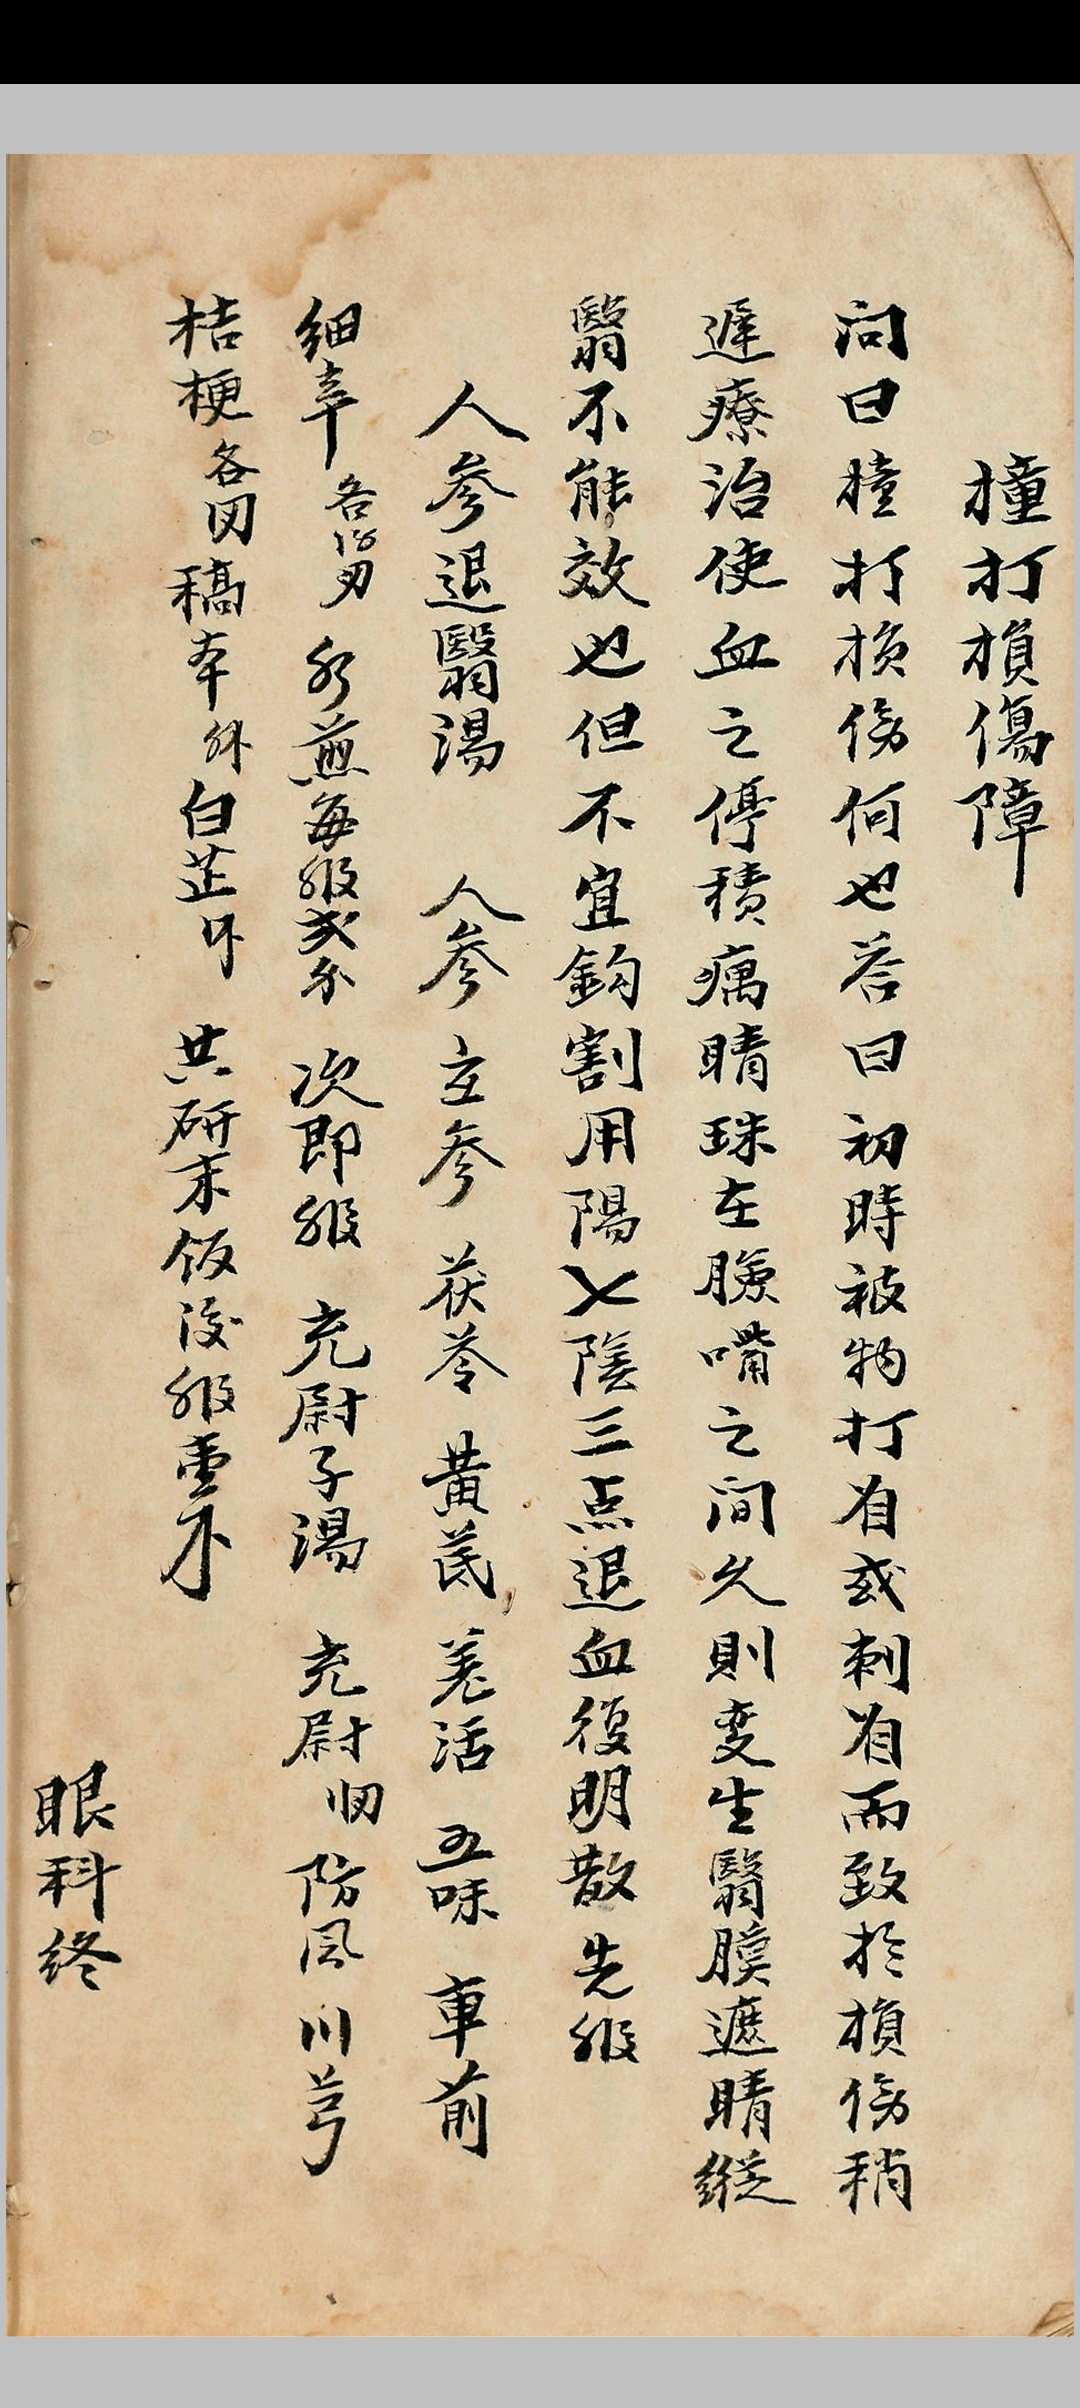 撞打損傷障
问曰撞打損傷何也答曰初時被物打有或刺有而致於損傷稍
遲療治使血之停積瘀睛珠在臉嘴之间久則变生翳膜遮睛縱
翳不能效也但不宜鈎割用陽七陰三点退血復明散先服
人参退翳湯 人参 玄参 茯苓 黃芪 羌活 五味 車前
细辛 各 水煎每服弍 次即服 充尉子湯 充尉 防风 川芎
桔梗 各 稿本 白芷 共研末饭後服壹
眼科终